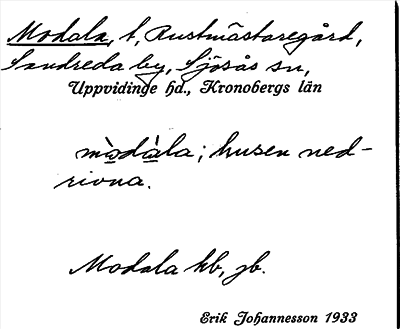 Modala, t, Rustmästaregård,
Sandreda by, Sjösås sn,
Uppvidinge hd., Kronobergs län
mòdàla; husen ned-
rivna.
Modala kb, jb.
Erik Johannesson 1933